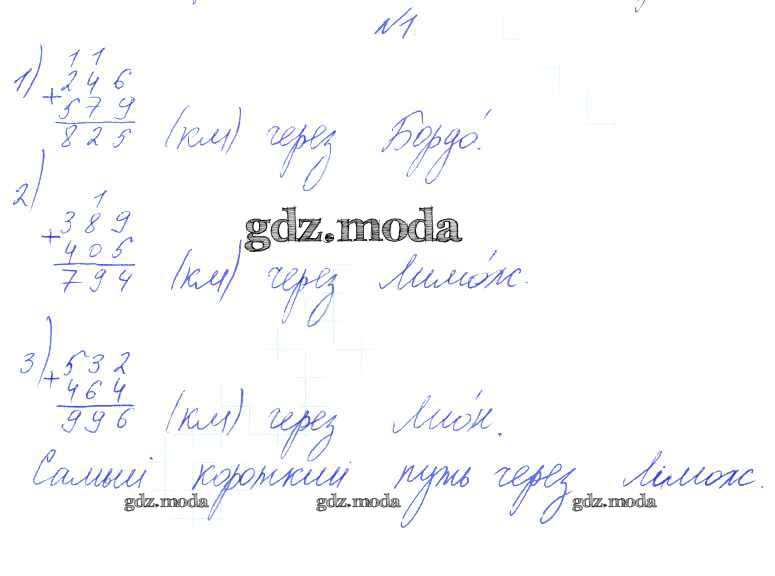 №1
1) 11
+246
579
825 (км) через Бордо́.
2) 1
+389
405
794 (км) через Лимо́ж.
gdz.moda
3) +532
464
996 (км) через Лио́н.
Самый короткий путь через Лимож.
gdz.moda gdz.moda gdz.moda